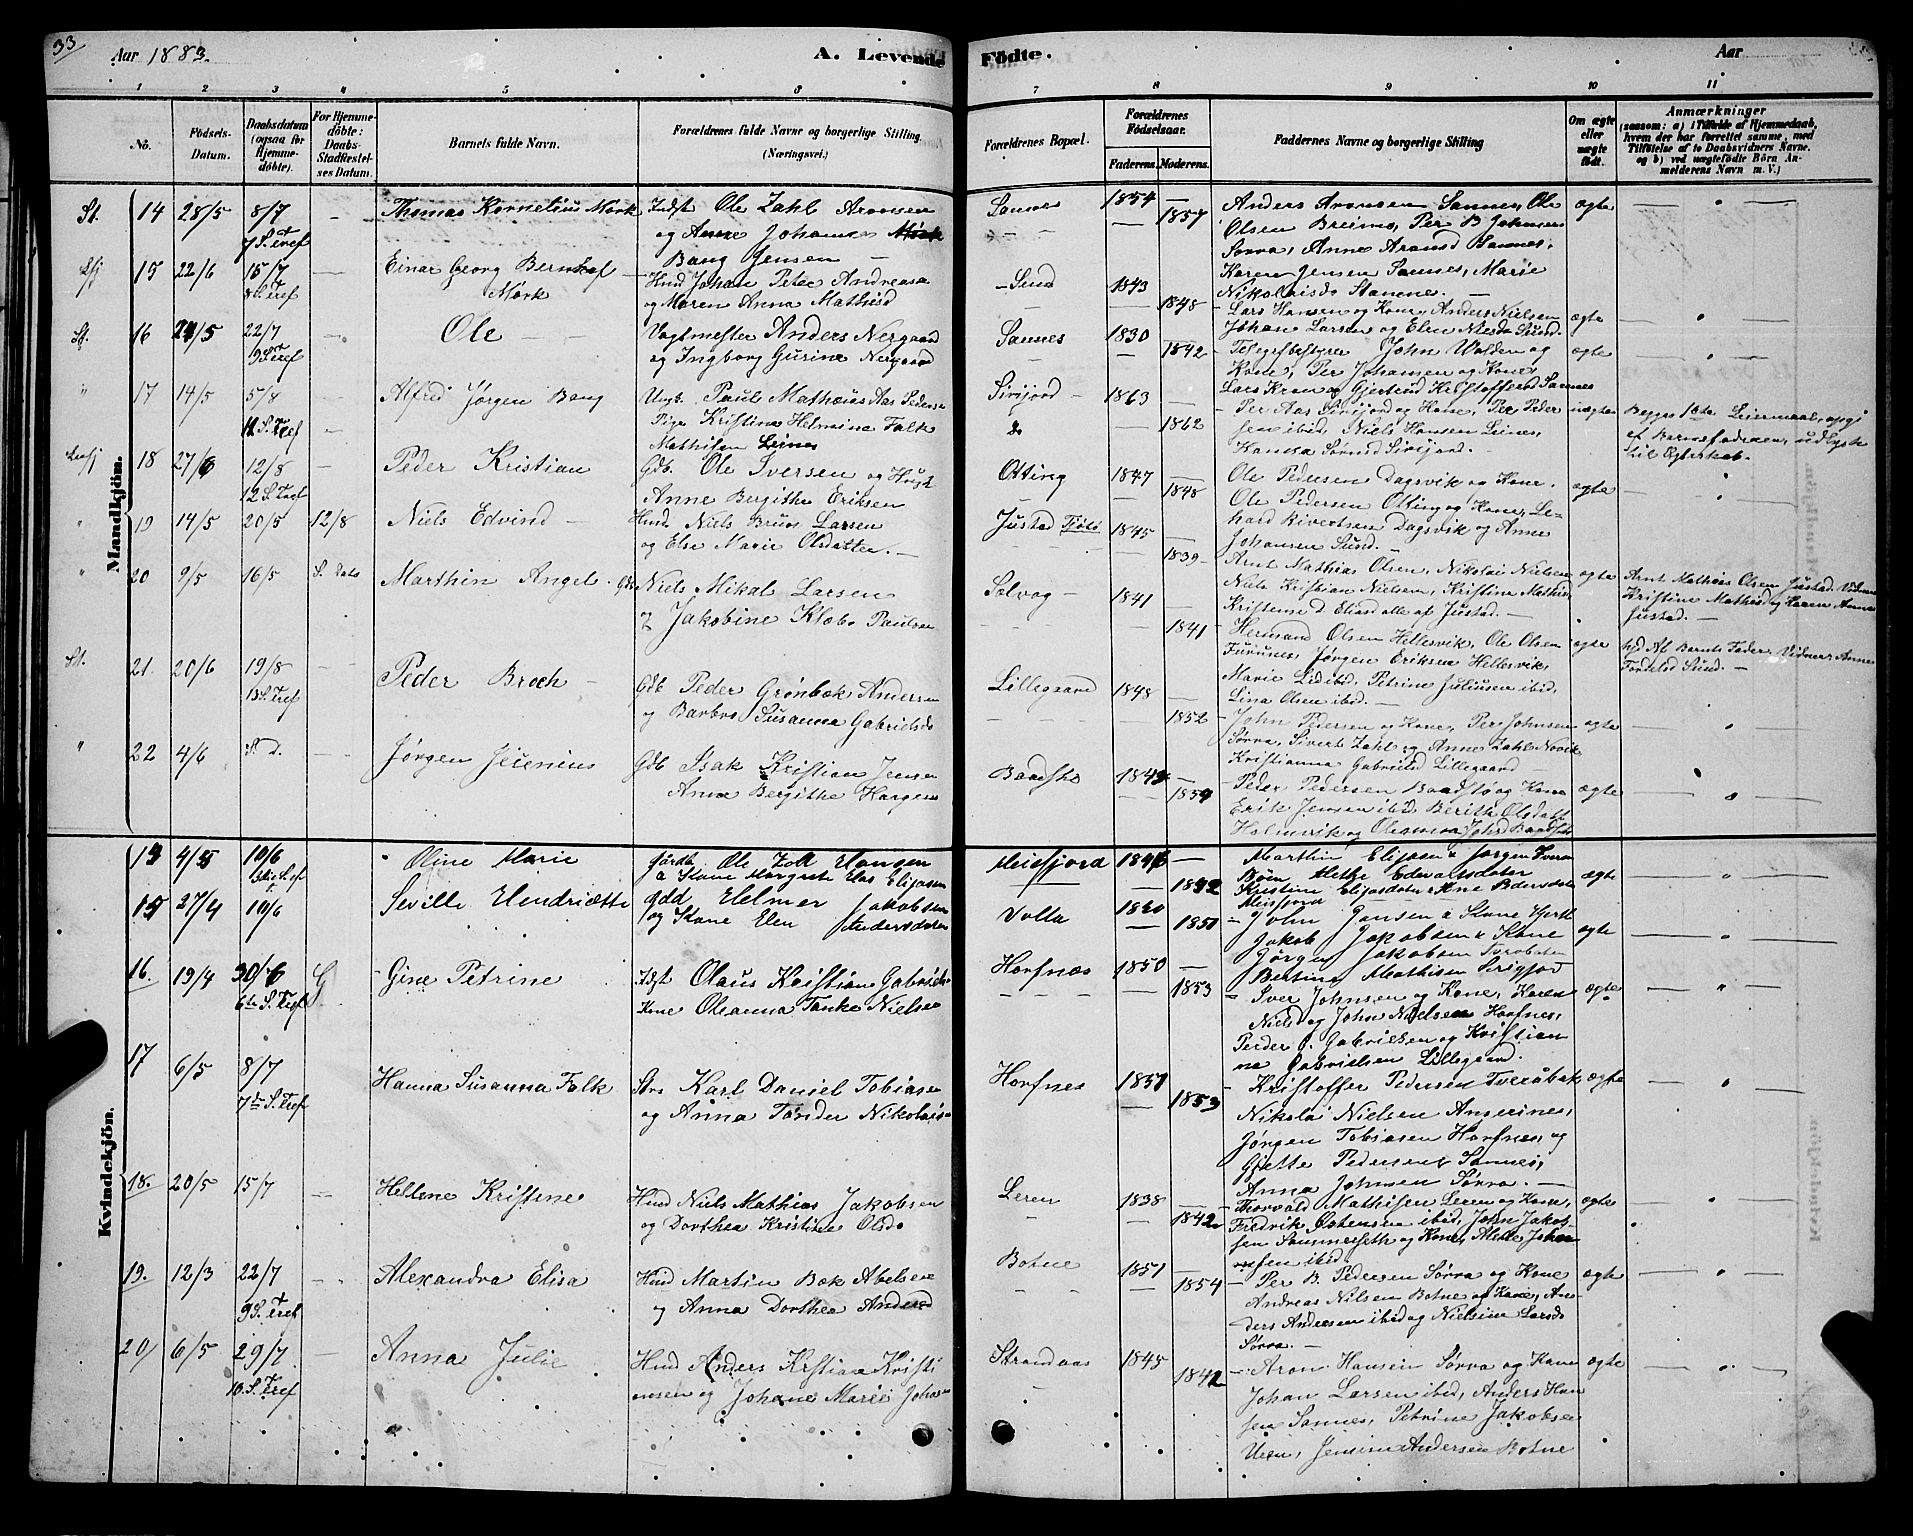 33
Aar 1883.
A. Levende
Födte.
Aar
1 2 3 4 5 6 7 8 9 10 11
No.
Födsels-Datum.
Daabsdatum (ogsaa for Hjemmedöbte).
For Hjemmedöbte: Daabs-Stadfæstelses Datum.
Barnets fulde Navn.
Forældrenes fulde Navne og borgerlige Stilling.
(Næringsvei.)
Forældrenes Bopæl.
Forældrenes Födselsaar.
Faderens. Moderens.
Faddernes Navne og borgerlige Stilling
Om ægte eller uægte födt.
Anmærkninger
(saasom: a) i Tilfælde af Hjemmedaab, hvem der har forrettet samme, med Tilföielse af to Daabsvidners Navne, og b) ved uægtefödte Börn Anmelderens Navn m. V.)
Mandkjön.
St. 14 28/5 8/7 Thomas Kornelius Mørk Indst Ole Zahl Aronsen Sannes 1854 Anders Aronsen Sannes, Ole ægte
7 S. e Tref og Anne Johanna 1857 Olsen Breimo, Per B Johnsen
Bang Jensen Sørra, Anne Aronsd Sannes,
15 22/6 15/7 Einar Georg Bernhof Hmd Johan Peter Andreasen Sund 1843 Karen Jensen Sannes, Marie
8 S. Tref Mørk og Maren Anna Mathisd 1848 Nikolaisd Stamne.
Lars Hansen og Kone, Anders Nielsen ægte
St. 16 24/5 22/7 Ole Vagtmester Anders Nergaard Sannes 1830 Johan Larsen og Elen Nielsd Sund.
9 S. Tref og Ingborg Gurine Nergaard 1842 Telegrafbestyrer John Walden og ægte
Kone, Per Johansen og Kone,
" 17 14/5 5/8 Alfred Jørgen Bang Ungk. Paul Mathæus Aas Pedersen Sirijord 1863 Lars Kron og Gjertrud Kristoffersd Sannes
11 S. Tref Pige Kristine Helmine Falk Do 1862 Per Aas Sirijord og Kone, Per Peder uægte Begges 1ste Leiermaal, opgi
Mathisen Leines sen ibid, Niels Hansen Leines, af Barnefaderen, udlagte
Hanna Sørensd Sirijord. til Egteskab.
18 27/6 12/8 Peder Kristian Gdb. Ole Iversen og Hust Otting 1847 Ole Pedersen Dagsvik og Kone, ægte
12 S. Tref Anne Bergithe Eriksen 1848 Ole Pedersen Otting og Kone, Le-
" 19 14/5 20/5 12/8 Niels Edvind Hmd Niels Bruus Larsen Justad Tjøtø 1845 hard Sivertsen Dagsvik og Anne
og Else Marie Olsdatter. 1839 Johansen Sund.
" 20 9/5 16/5 S. Dato Marthin Angel Gdb Niels Mikal Larsen Solvog 1841 Arnt Mathias Olsen, Nikolai Nielsen ægte Arnt Mathias Olsen Justad. Vidner
Niels Kristian Nielsen, Kristine Mathisd Kristine Mathisd og Karen Anna
og Jakobine Klæbo Paulsen Kristense d Eliasd alle af Justad. Justad.
1841 Hermand Olsen Hellesvik, Ole Olsen ægte hjd Af Barnets Fader, Vidner, Anne
Furunes, Jørgen Eriksen Hellesvik, Sund.
St. 21 20/6 19/8 Peder Broch Gdb Peder Grønbæk Andersen Lillegaard 1848 Marie ibid, Petrine Juliusen ibid,
13 S. Tref og Barbro Susanna Gabrielsd Lina Olsen ibid.
1852 John Pedersen og Kone, Per Johnsen ægte
" 22 4/6 S. d. Jørgen Jeienius Gdb Isak Kristian Jensen Baadstø 1849 Sørra, Sivert Zahl og Anne Zahl Novik
Anne Bergithe 1859 Kristianna Gabrielsd Lillegaard
Peder Pedersen Baadstø og Kone ægte
Erik Jensen ibid, Berith Olsdatt
Holmvik og Oleanna Johsd Baadstø
Kvindekjön.
4/5 10/6 Oline Marie Gårdb Ole Hansen Meisfjord Marthin Elijasen Jørgen Iversen
a Kone Margrete Elijasen Mette Edvartsdater ægte
15 27/4 10/6 Seville Hendriætte Gdd Helmer Jakobsen Volla Kristine Elijasdater Pedersdater
og Kone Elen Andersdater Meisfjord
John Jansen Kone ægte
Jakob Jakobsen Kone
Jørgen Jakobsen
16. 19/4 30/6 Gine Petrine Idst Olaus Kristian Gabriels Horfnæs 1850 Bertine Mathisen Sirijord
6te S. Tref Kone Oleanna Tanke Nielsen 1853 Iver Johnsen og Kone, Karen ægte
Nielsd og John Nielsen Horfnes,
Peder J. Gabrielsen og Kristian
na Gabrielsen Lillegaard.
17 6/5 8/7 Hanna Susanna Falk Strs Karl Daniel Tobiasen Horfnes 1851 Kristoffer Pedersen Tveråbak ægte
7de S. Tref og Anna Tønder Nikolais 1853 Nikolai Nielsen Angerines,
Jørgen Tobiasen Horfnes, og
Gjette Pedersen Sannes,
Anna Johnsen Sørra.
18. 20/5 15/7 Hellene Kristine Hmd Niels Mathias Jakobsen Leren 1838 Thorvald Mathisen Leren og Kone, ægte
og Dorthea Kristine Olsd. 1842 Fredrik Østensen ibid, John Jakob-
sen Sommerseth og Kone, Mette Johan
nsen ibid.
19. 12/3 22/7 Alexandra Elisa Hmd Martin Bæk Abelsen Botne 1851 Per B. Pedersen Sørra og Kone ægte
9 S. Tref og Anna Dorthea Andersd 1854 Andreas Nilsen Botne og Kone, An-
ders Andersen ibid og Nielsine Larsd
Sørra.
20 6/5 29/7 Anna Julie Hmd Anders Kristian Kristi Strandaas 1845 Aron Hansen Sørra og Kone ægte
10. S. Tref ansen og Johane Marie Johan 1842 Johan Larsen ibid, Anders Han
sen Sannes, Petrine Jakobsen
Ueen, Jensine Andersen Botne